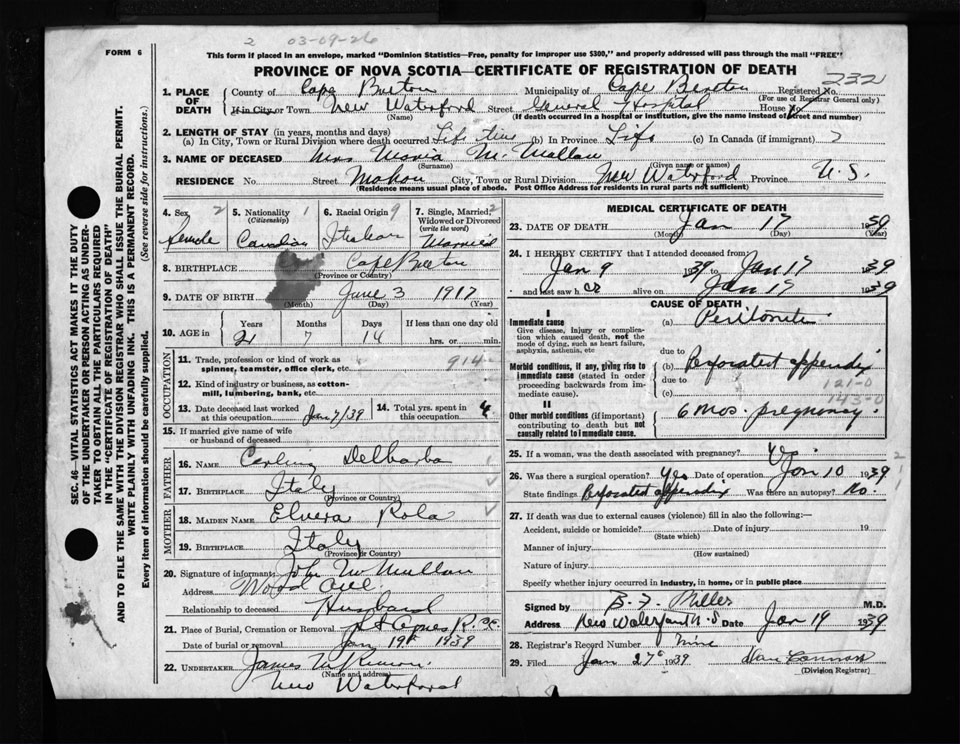 2 03-09-26
FORM 6
This form if placed in an envelope, marked "Dominion Statistics—Free, penalty for improper use $300," and properly addressed will pass through the mail "FREE"
PROVINCE OF NOVA SCOTIA—CERTIFICATE OF REGISTRATION OF DEATH
232
1. PLACE OF DEATH County of Cape Breton Municipality of Cape Breton Registered No.
(For use of Registrar General only)
If in City or Town New Waterford Street General Hospital House No
(Name) (If death occurred in a hospital or institution, give name instead of street and number)
2. LENGTH OF STAY (in years, months and days)
(a) In City, Town or Rural Division where death occurred Life time (b) In Province Life (c) In Canada (if immigrant)
3. NAME OF DECEASED Mrs Maria McMullan
(Surname) (Given name or names)
RESIDENCE No. Street Mahon City, Town or Rural Division New Waterford Province N. S.
(Residence means usual place of abode. Post Office Address for residents in rural parts not sufficient)
4. Sex 2 Female
5. Nationality 1 (Citizenship) Canadian
6. Racial Origin 9 Italian
7. Single, Married, 2 Widowed or Divorced (write the word) Married
8. BIRTHPLACE Cape Breton
(Province or Country)
9. DATE OF BIRTH June 3 1917
(Month) (Day) (Year)
10. AGE in Years Months Days If less than one day old
21 7 14 hrs. or min.
OCCUPATION
11. Trade, profession or kind of work as spinner, teamster, office clerk, etc. 914
12. Kind of industry or business, as cotton-mill, lumbering, bank, etc.
13. Date deceased last worked at this occupation Jan 7/39 14. Total yrs. spent in this occupation 4
15. If married give name of wife or husband of deceased
FATHER
16. NAME Delbarba
17. BIRTHPLACE Italy
(Province or Country)
MOTHER
18. MAIDEN NAME Elvera Rola
19. BIRTHPLACE Italy
(Province or Country)
20. Signature of informant John McMullan
Address Wood Ave
Relationship to deceased Husband
21. Place of Burial, Cremation or Removal St Agnes R.C.
Date of burial or removal Jan 19th 1939
22. UNDERTAKER James McKinnon
(Name and address)
New Waterford
MEDICAL CERTIFICATE OF DEATH
23. DATE OF DEATH Jan 17 1939
(Month) (Day) (Year)
24. I HEREBY CERTIFY that I attended deceased from
Jan 9 1939 to Jan 17 1939
and last saw her alive on Jan 17 1939
CAUSE OF DEATH
I
Immediate cause (a) Peritonitis
Give disease, injury or complication which caused death, not the mode of dying, such as heart failure, asphyxia, asthenia, etc
due to
Morbid conditions, if any, giving rise to immediate cause (stated in order proceeding backwards from immediate cause). (b) Perforated appendix
due to 121-0
(c) 143-0
II
Other morbid conditions (if important) contributing to death but not causally related to immediate cause. 6 mos. pregnancy.
25. If a woman, was the death associated with pregnancy?
26. Was there a surgical operation? Yes Date of operation Jan 10 1939
State findings Perforated appendix Was there an autopsy? No.
27. If death was due to external causes (violence) fill in also the following:—
Accident, suicide or homicide? Date of injury 19
(State which)
Manner of injury
(How sustained)
Nature of injury
Specify whether injury occurred in industry, in home, or in public place
Signed by B. F. Miller M.D.
Address New Waterford N.S Date Jan 19 1939
28. Registrar's Record Number nine
29. Filed Jan 27th 1939 Dan Cannon
(Division Registrar)
SEC. 46—VITAL STATISTICS ACT MAKES IT THE DUTY
OF THE UNDERTAKER OR PERSON ACTING AS UNDER-
TAKER TO OBTAIN ALL THE PARTICULARS REQUIRED
IN THE "CERTIFICATE OF REGISTRATION OF DEATH"
AND TO FILE THE SAME WITH THE DIVISION REGISTRAR WHO SHALL ISSUE THE BURIAL PERMIT.
WRITE PLAINLY WITH UNFADING INK. THIS IS A PERMANENT RECORD.
Every item of information should be carefully supplied. (See reverse side for instructions.)